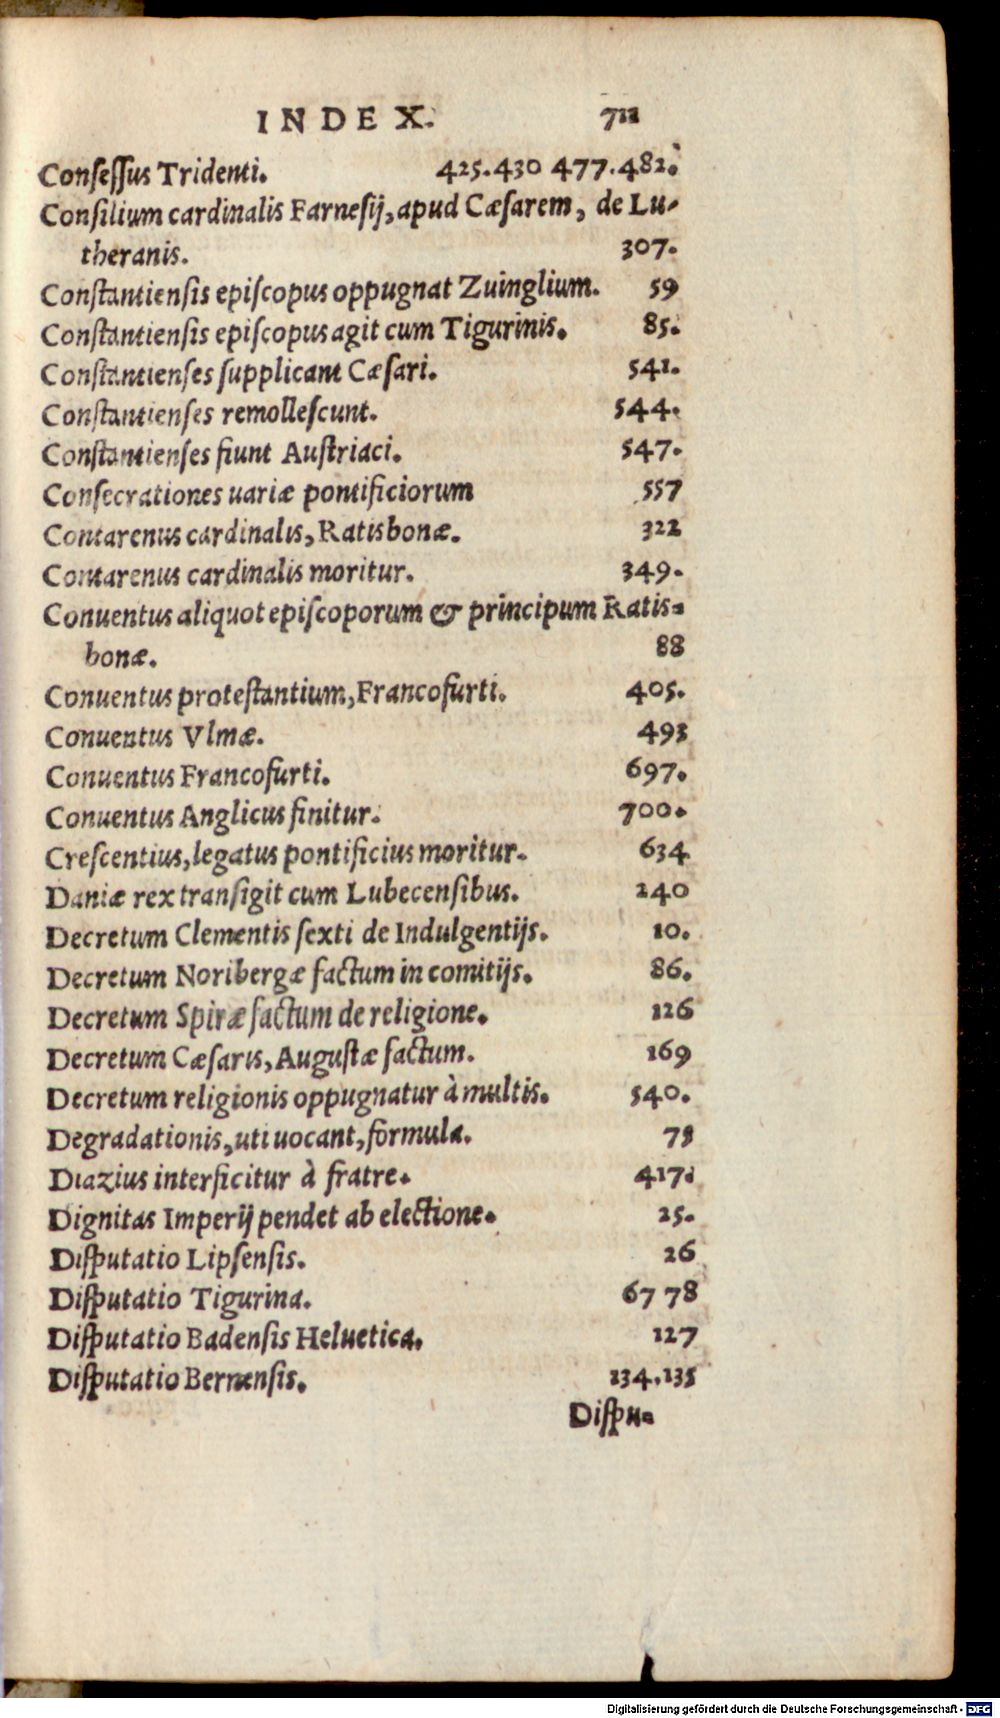 INDEX. 711
Consessus Tridenti. 425.430 477.482.
Consilium cardinalis Farnesij, apud Cæsarem, de Lu-
theranis. 307.
Constantiensis episcopus oppugnat Zuinglium. 59
Constantiensis episcopus agit cum Tigurinis. 85.
Constantienses supplicant Cæsari. 541.
Constantienses remollescunt. 544.
Constantienses fiunt Austriaci. 547.
Consecrationes uariæ pontificiorum 557
Contarenus cardinalis, Ratisbonæ. 322
Contarenus cardinalis moritur. 349.
Conuentus aliquot episcoporum & principum Ratis-
bonæ. 88
Conuentus protestantium, Francofurti. 405.
Conuentus Vlmæ. 493
Conuentus Francofurti. 697.
Conuentus Anglicus finitur. 700.
Crescentius, legatus pontificius moritur. 634
Daniæ rex transigit cum Lubecensibus. 240
Decretum Clementis sexti de Indulgentijs. 10.
Decretum Noribergæ factum in comitijs. 86.
Decretum Spiræ factum de religione. 126
Decretum Cæsaris, Augustæ factum. 169
Decretum religionis oppugnatur à multis. 540.
Degradationis, uti uocant, formula. 75
Diazius interficitur à fratre. 417.
Dignitas Imperij pendet ab electione. 25.
Disputatio Lipsensis. 26
Disputatio Tigurina. 67 78
Disputatio Badensis Heluetica. 127
Disputatio Bernensis. 134.135
Dispu-
Digitalisierung gefördert durch die Deutsche Forschungsgemeinschaft - DFG